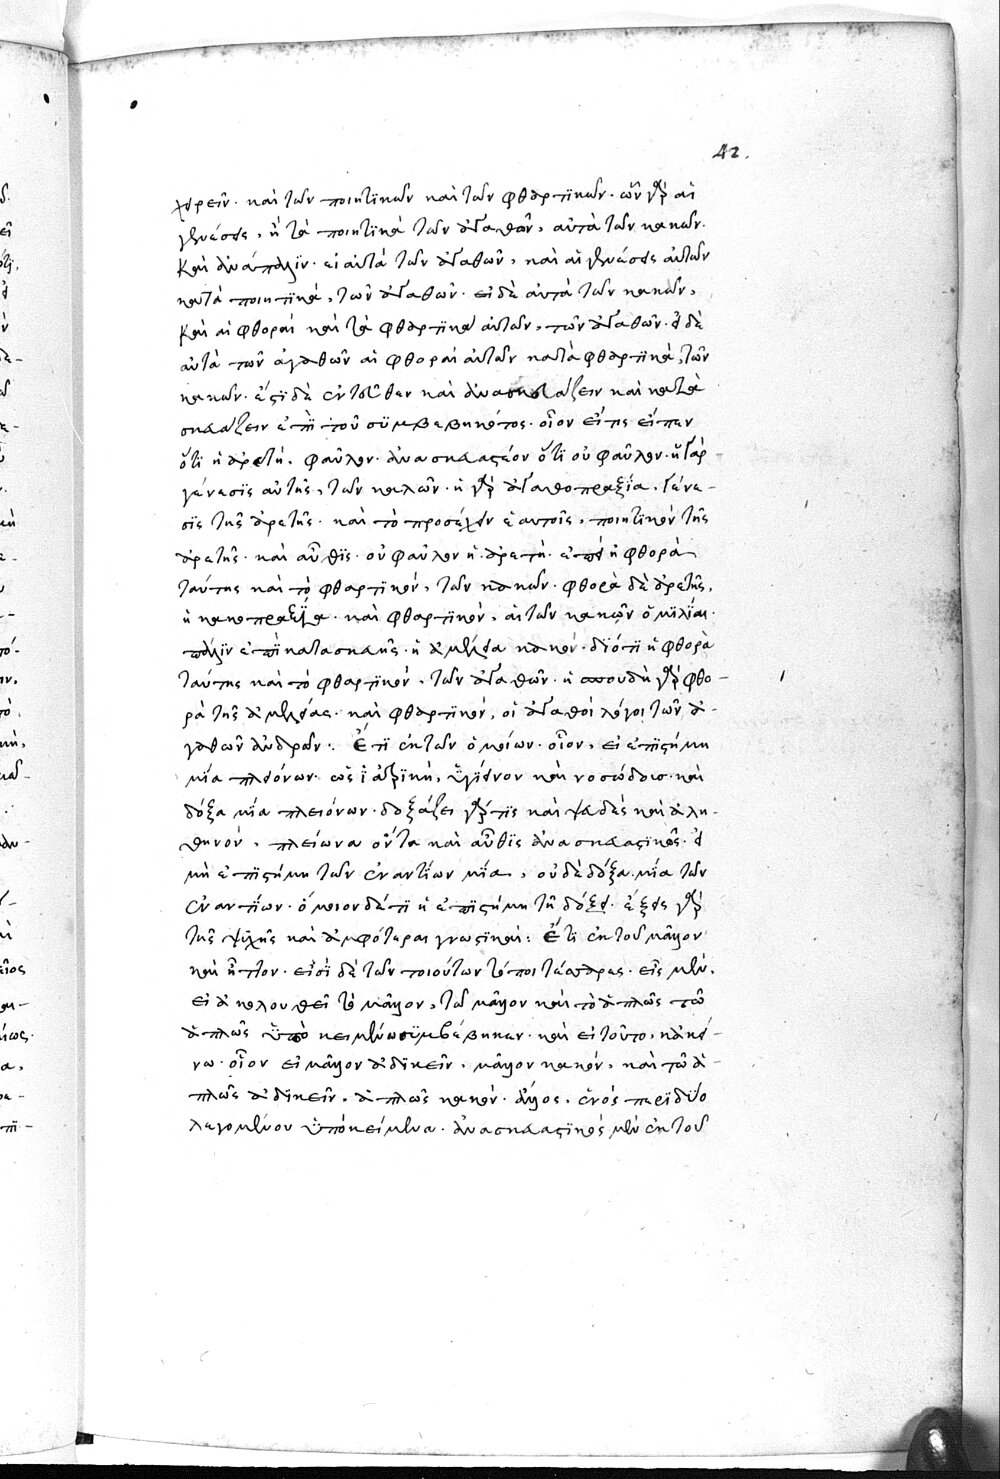 42.
χρεῖν· καὶ τῶν ποιητικῶν καὶ τῶν φθαρτικῶν· ὧν γὰρ αἱ
γενέσεις, ἢ τὰ ποιητικὰ τῶν ἀγαθῶν, αὐτὰ τῶν κακῶν.
Καὶ ἀνάπαλιν· εἰ αὐτὰ τῶν ἀγαθῶν, καὶ αἱ γενέσεις αὐτῶν
κατὰ ποιητικὰ, τῶν ἀγαθῶν· εἰ δὲ αὐτὰ τῶν κακῶν,
Καὶ αἱ φθοραὶ καὶ τὰ φθαρτικὰ αὐτῶν, τῶν ἀγαθῶν· εἰ δὲ
αὐτὰ τῶν ἀγαθῶν αἱ φθοραὶ αὐτῶν κατὰ φθαρτικὰ, τῶν
κακῶν· ἔστι δὲ ἐντεῦθεν καὶ ἀνασκευάζειν καὶ κατα
σκευάζειν ἐπὶ τοῦ συμβεβηκότος· οἷον εἴ τις εἴπεν
ὅτι ἡ ἀρετὴ, φαῦλον· ἀνασκευαστέον ὅτι οὐ φαῦλον· ἡ γὰρ
γένεσις αὐτῆς, τῶν καλῶν· ἡ γὰρ ἀγαθοπραξία, γένε-
σις τῆς ἀρετῆς· καὶ τὸ προσέχειν ἑαυτοῖς, ποιητικὸν τῆς
ἀρετῆς· καὶ αὖθις· οὐ φαῦλον ἡ ἀρετή· ἐπεὶ ἡ φθορὰ
ταύτης καὶ τὸ φθαρτικὸν, τῶν κακῶν· φθορὰ δὲ ἀρετῆς,
ἡ κακοπραξία· καὶ φθαρτικὸν, αἱ τῶν κακῶν ὁμιλίαι·
πάλιν ἐπὶ κατασκευῆς· ἡ ἀμέλεια κακόν· διότι ἡ φθορὰ
ταύτης καὶ τὸ φθαρτικὸν, τῶν ἀγαθῶν· ἡ σπουδὴ γὰρ φθο-
ρὰ τῆς ἀμελείας· καὶ φθαρτικὸν, οἱ ἀγαθοὶ λόγοι τῶν ἀ-
γαθῶν ἀνδρῶν:· Ἔτι ἐκ τῶν ὁμοίων· οἷον, εἰ ἐπιστήμη
μία πλειόνων· ὡς ἰατρικὴ, ὑγιεινον καὶ νοσώδους· καὶ
δόξα μία πλειόνων· δοξάζει γάρ τις καὶ ψευδὲς καὶ ἀλη-
θηνόν, πλείωνα ὄντα καὶ αὖθις ἀνασκευαστικῶς· εἰ
μὴ ἐπιστήμη τῶν ἐναντίων μία, οὐδὲ δόξα μία τῶν
ἐναντίων· ὅμοιον δέ τι ἡ ἐπιστήμη τῇ δόξει· ἕξεις γὰρ
τῆς ψυχῆς καὶ ἀμφότεραι γνωστικαί: Ἔτι ἐκ τοῦ μᾶλλον
καὶ ἧττον· εἰσὶ δὲ τῶν ποιούτων τόποι τέσσαρες· εἷς μὲν,
εἰ ἀκολουθεῖ τὸ μᾶλλον, τῶ μᾶλλον καὶ τὸ ἁπλῶς τῶ
ἁπλῶς ὑποκειμένω συμβέβηκεν· καὶ εἰ τοῦτο, κἀκεῖ-
νο· οἷον εἰ μᾶλλον ἀδικεῖν, μᾶλλον κακόν, καὶ τῶ ἁ-
πλῶς ἀδικεῖν, ἁπλῶς κακόν· ἄλλος, ἑνὸς περὶ δύο
λεγομένου ὑποκείμενα· ἀνασκευαστικῶς μὲν ἐκ τοῦ